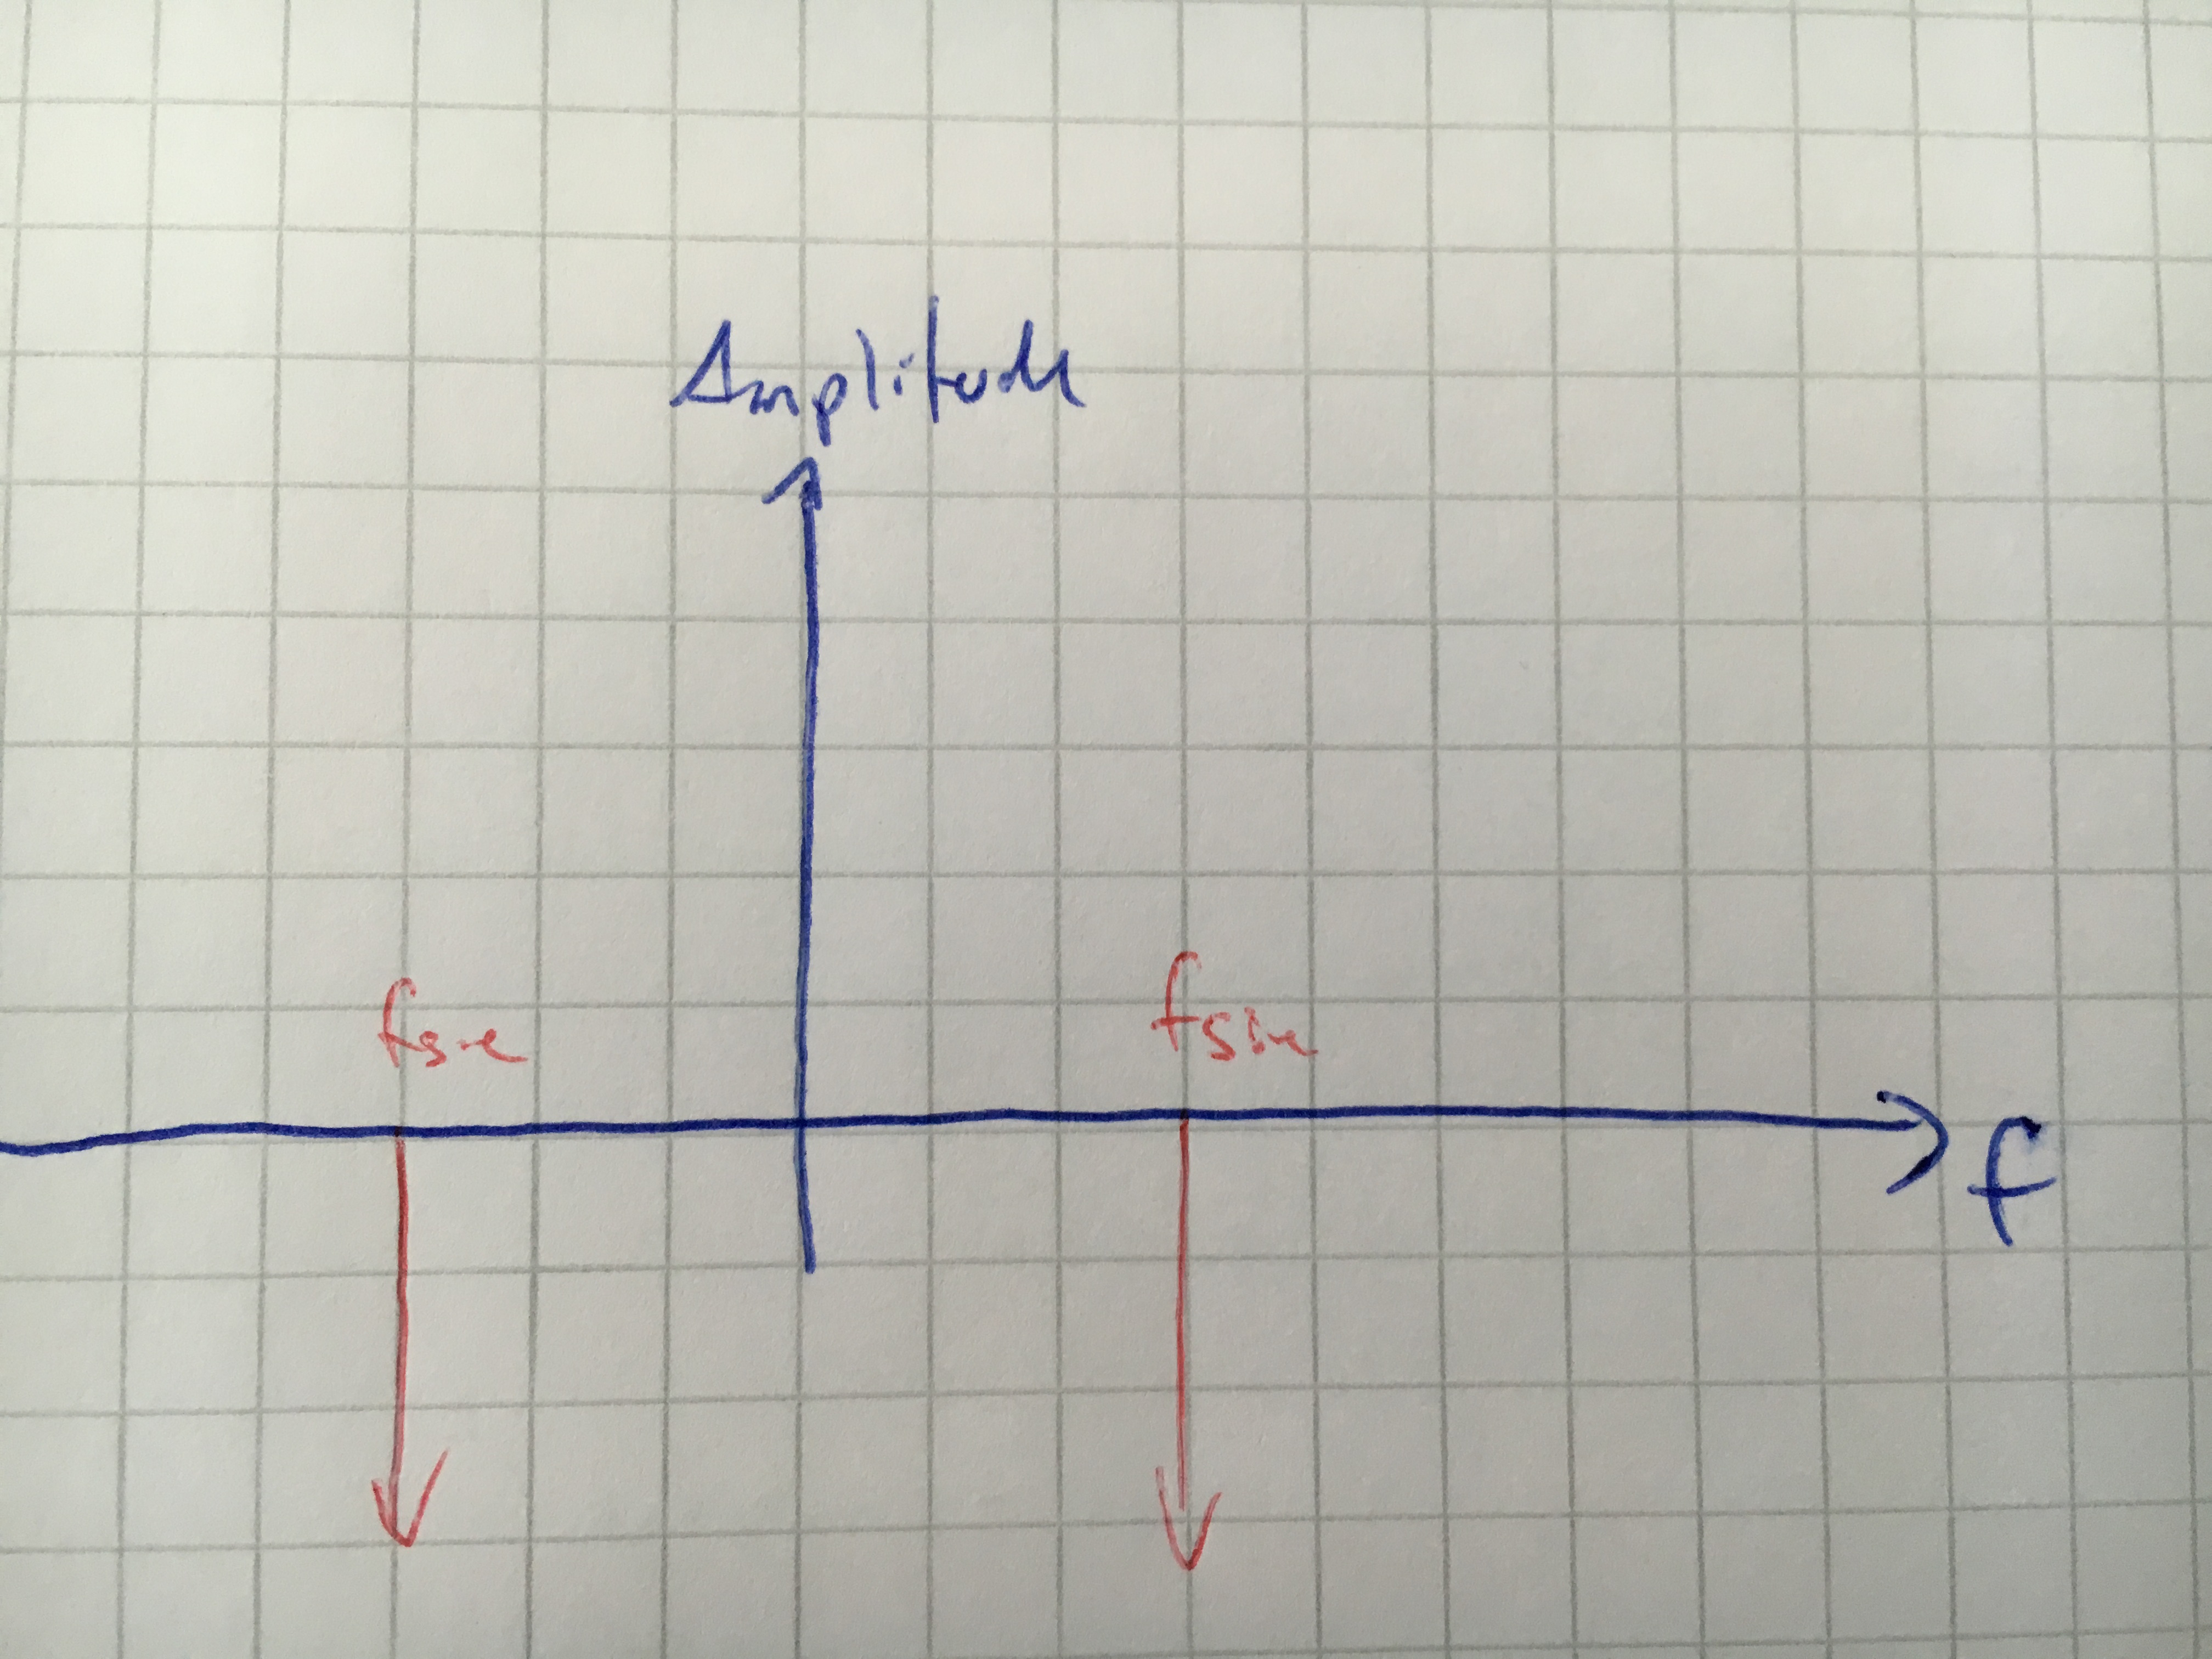 Amplitude
fsine
fsine
f